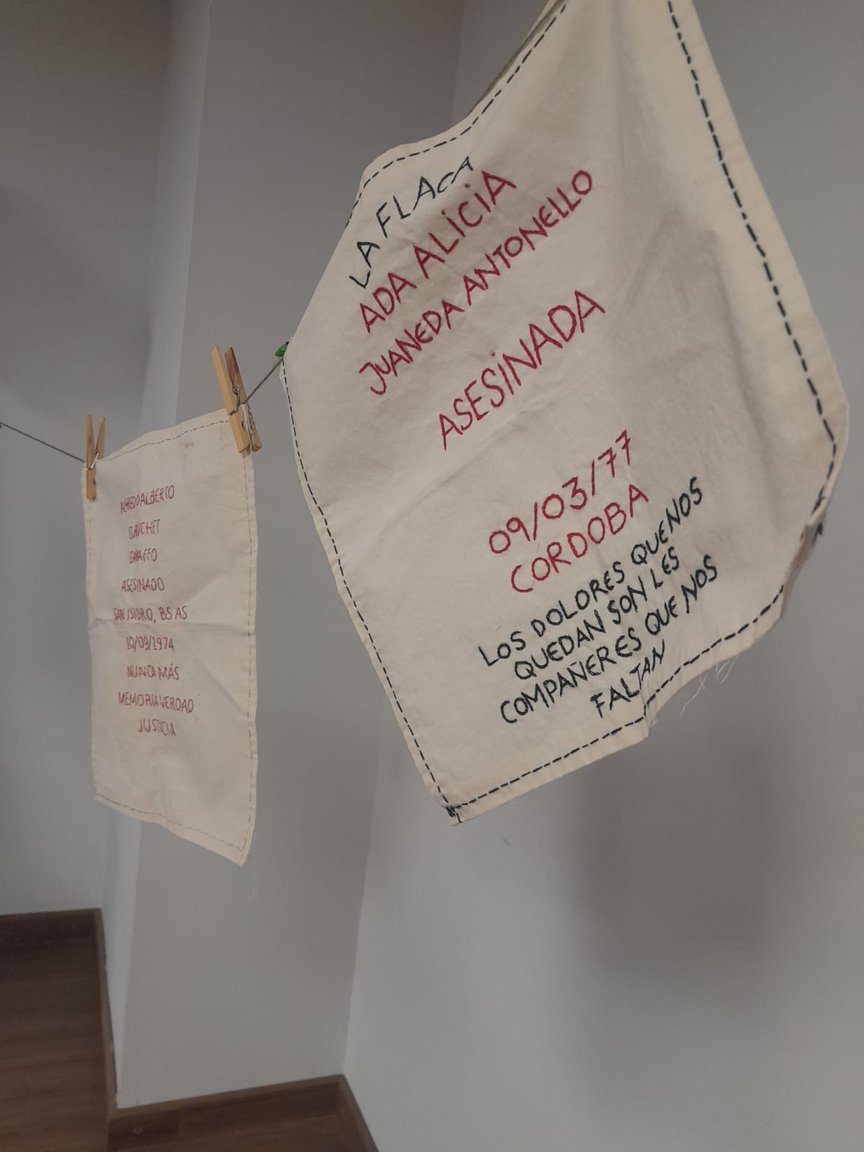 ALBERTO
ASESINADO
SAN ISIDRO, BS AS
10/09/1974
NUNCA MÁS
MEMORIA VERDAD
JUSTICIA
LA FLACA
ADA ALiCiA
JUANEDA ANTONELLO
ASESiNADA
09/03/77
CORDOBA
LOS DOLORES QUE NOS
QUEDAN SON LES
COMPAÑERES QUE NOS
FALTAN